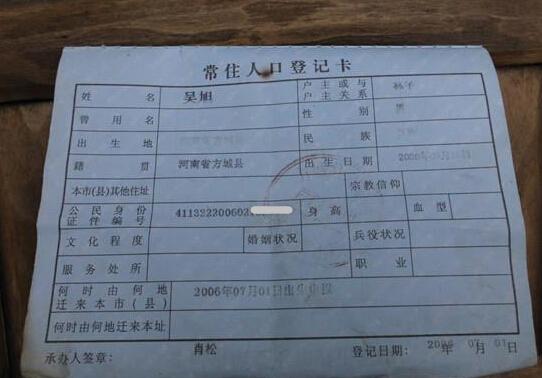 常住人口登记卡
姓名 吴旭 户主或与户主关系 孙子
曾用名 性别 男
出生地 河南省方城县 民族
籍贯 河南省方城县 出生日期 2006年
本市(县)其他住址 宗教信仰
公民身份证件编号 41132220060 身高 血型
文化程度 婚姻状况 兵役状况
服务处所 职业
何时由何地迁来本市(县) 2006年07月01日出生
何时由何地迁来本址
承办人签章: 肖松 登记日期: 2006年07月01日